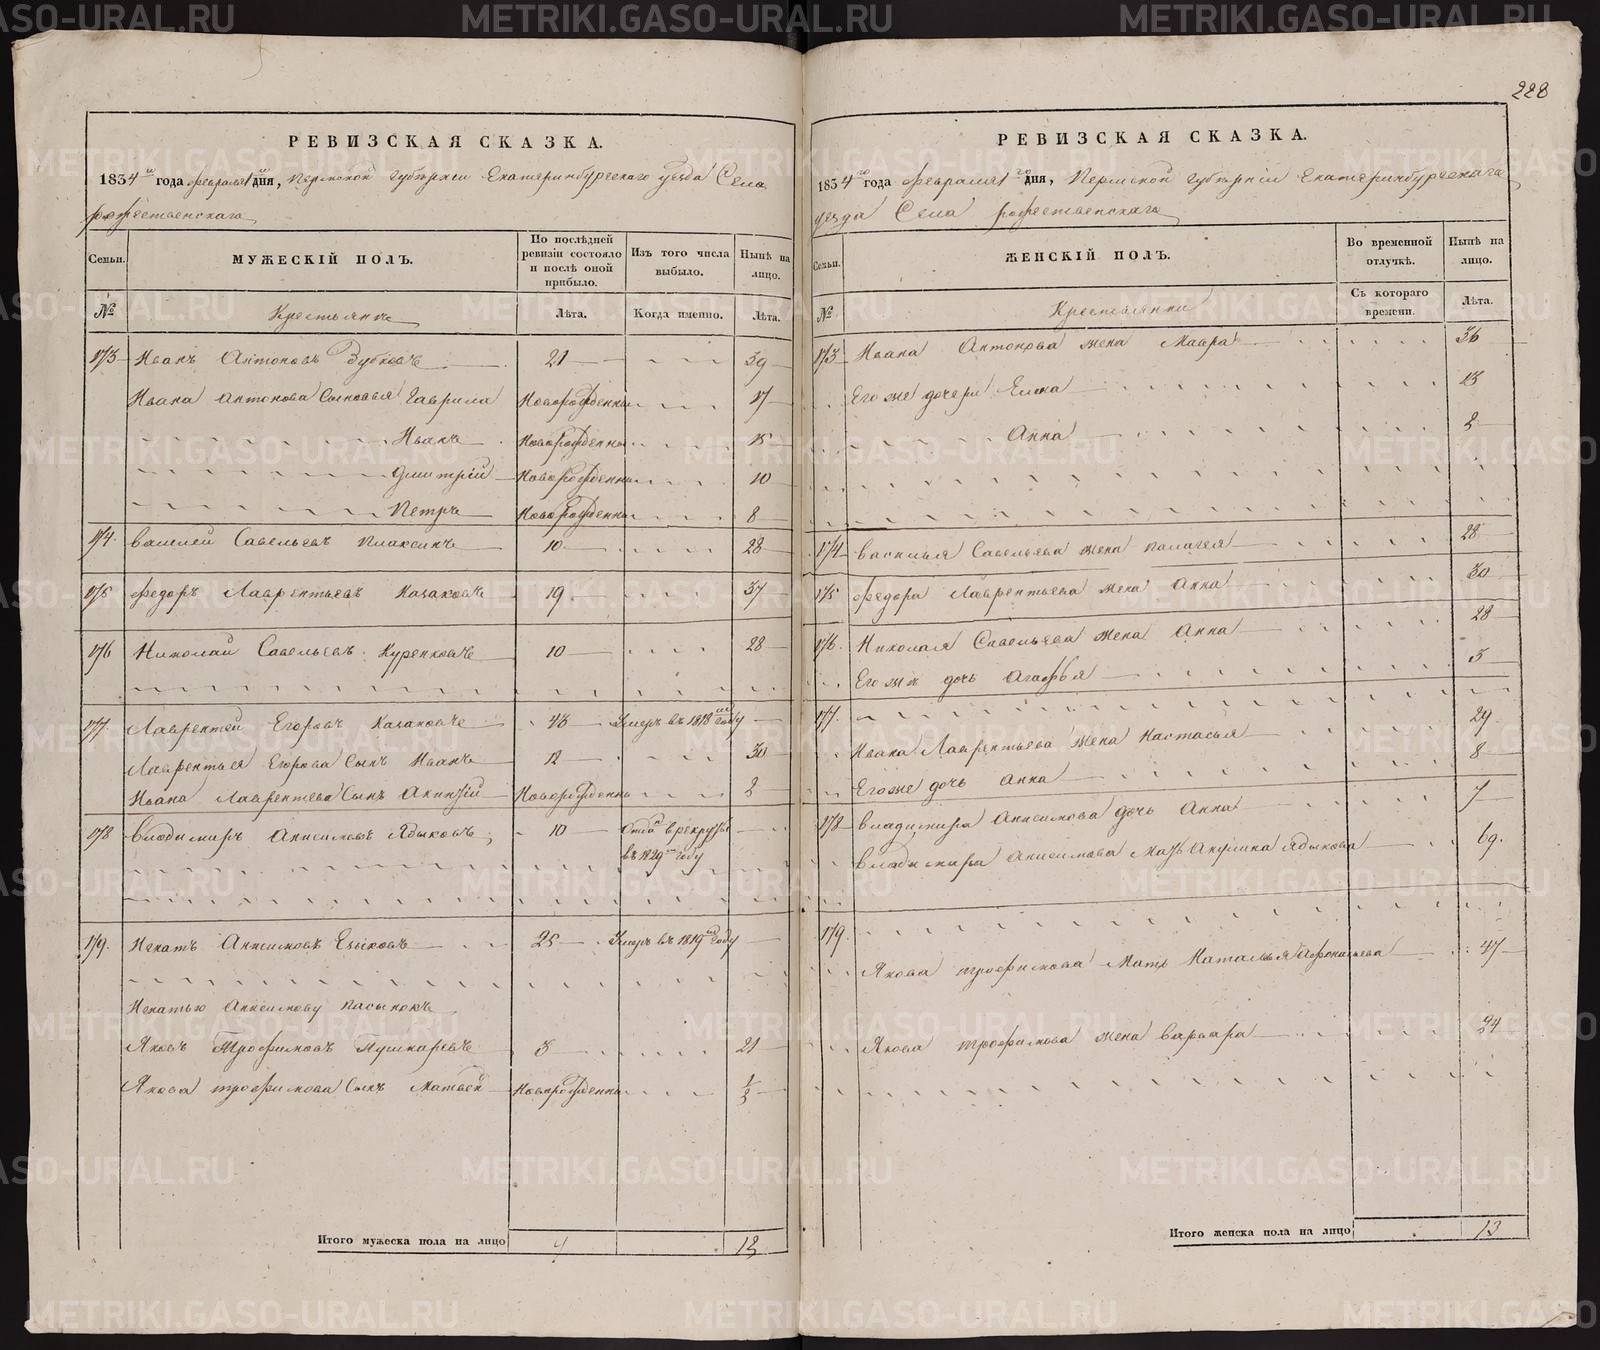 228
РЕВИЗСКАЯ СКАЗКА.
1834 го года февраля 1 дня, Пермской губернии Екатеринбургскаго уезда Села
рожественскаго
Семьи. МУЖЕСКІЙ ПОЛЪ. По послѣдней ревизіи состояло и послѣ оной прибыло. Изъ того числа выбыло. Нынѣ на лицо.
№ Крестьяне Лѣта. Когда именно. Лѣта.
173 Иванъ Антоновъ Зубковъ 21 39
Ивана Антонова Сыновья Гаврила Новорожденны 17
Иванъ Новорожденны 15
Дмитрій Новорожденны 10
Петръ Новорожденны 8
174. Василей Савельевъ Плаксинъ 10 28
175 Федоръ Лаврентьевъ Казаковъ 19 37
176 Николай Савельевъ Куренковъ 10 28
177. Лаврентей Егоровъ Казаковъ 43 Умеръ въ 1818 году
Лаврентья Егорова Сынъ Иванъ 12 30
Ивана Лаврентева Сынъ Акинфій Новорожденны 2
178 Владимиръ Анисимовъ Ядыковъ 10 Отда въ рекруты
въ 1829 году
179. Игнатъ Анисимовъ 25 Умеръ въ 1819 году
Игнатью Анисимову пасынокъ
Яковъ Трофимовъ Пушкаревъ 3 21
Якова трофимова Сынъ Матвей Новорожденны 1/3
Итого мужеска пола на лицо 12
РЕВИЗСКАЯ СКАЗКА.
1834 го года февраля 1 го дня, Пермской губерніи Екатеринбургскаго
уезда Села рожественскаго
Семьи. ЖЕНСКІЙ ПОЛЪ. Во временной отлучкѣ. Нынѣ на лицо.
№ Крестьянки Съ котораго времени. Лѣта.
173 Ивана Антонова жена Мавра 36
Его же дочери Елена 13
Анна 2
174 Василья Савельева жена палагея 28
175 Федора Лаврентьева жена Анна 30
176. Николая Савельева жена Анна 28
Его же дочь Агафья 3
177.
Ивана Лаврентьева жена Настасья 29
Его же дочь анна 8
178 Владимира Анисимова дочь Анна 7
Владимира Анисимова Мать Акулина Ядыкова 69.
179.
Якова трофимова Мать Наталья Афонасьева 47
Якова трофимова жена Варвара 24
Итого женска пола на лицо 13
METRIKI.GASO-URAL.RU